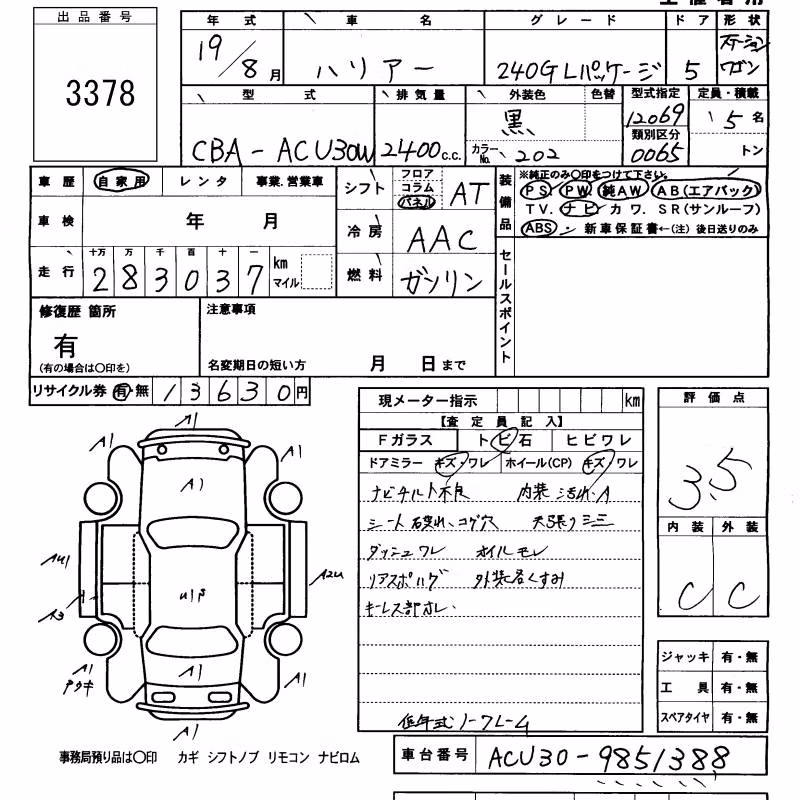 出品番号
3378
年式 車名 グレード ドア 形状
19/8月 ハリアー 240G Lパッケージ 5 ステーションワゴン
型式 排気量 外装色 色替 型式指定 定員・積載
CBA-ACU30W 2400c.c. 黒 12069 5名
カラーNo. 202 類別区分 0065 トン
車歴 自家用 レンタ 事業.営業車
シフト フロア コラム パネル AT
車検 年 月
冷房 AAC
走行 十万 万 千 百 十 一
283037 km マイル
燃料 ガソリン
装備品
※純正のみ〇印をつけて下さい。
PS PW 純AW AB(エアバック)
TV. ナビ カワ. SR(サンルーフ)
ABS・ 新車保証書←(注)後日送りのみ
セールスポイント
修復歴 箇所
有
(有の場合は〇印を)
注意事項
名変期日の短い方 月 日まで
リサイクル券 有・無 13630円
現メーター指示 km
【査定員記入】
Fガラス トビ石 ヒビワレ
ドアミラー キズ・ワレ ホイール(CP) キズ・ワレ
ナビチルト不良 内装 汚れ・A
シート破れ、コゲ穴 天張りシミ
ダッシュワレ オイルモレ
リアスポハゲ 外装名くすみ
キーレス部オレ
低年式ノークレーム
評価点
3.5
内装 外装
C C
ジャッキ 有・無
工具 有・無
スペアタイヤ 有・無
A1
A1 A1
A1
AU1 A2U
A
A3
A1 A1
A1
A1
事務局預り品は〇印 カギ シフトノブ リモコン ナビロム
車台番号 ACU30-9851388